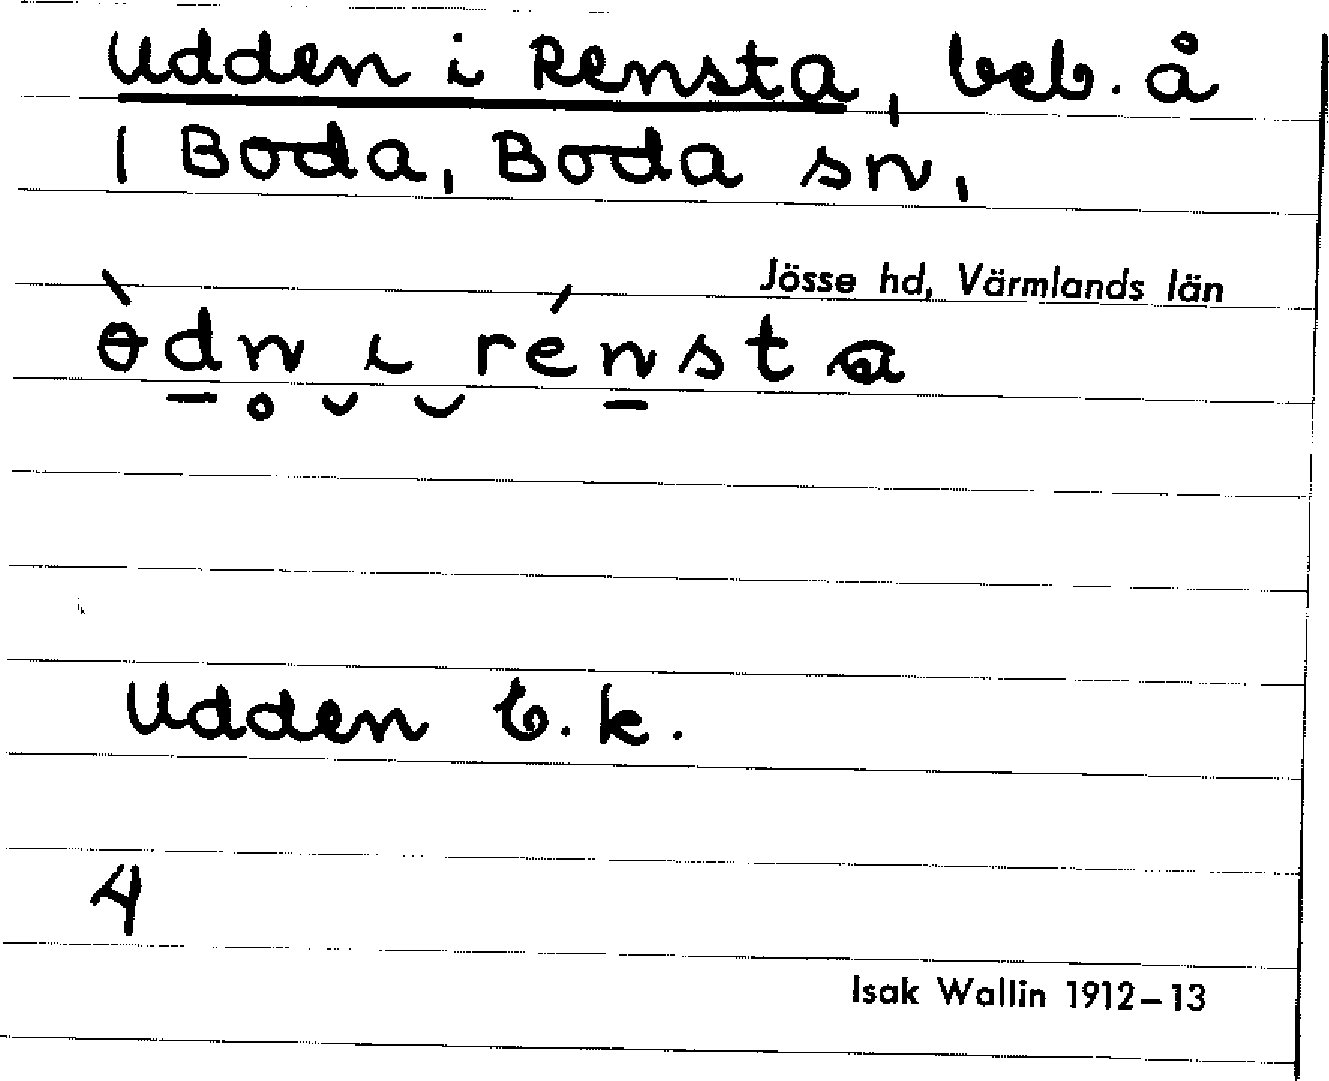 Udden i Rensta, beb. å
1 Boda, Boda sn,
Jösse hd, Värmlands län
ɵ̀dn̥ i rénsta
Udden G.k.
4
Isak Wallin 1912–13